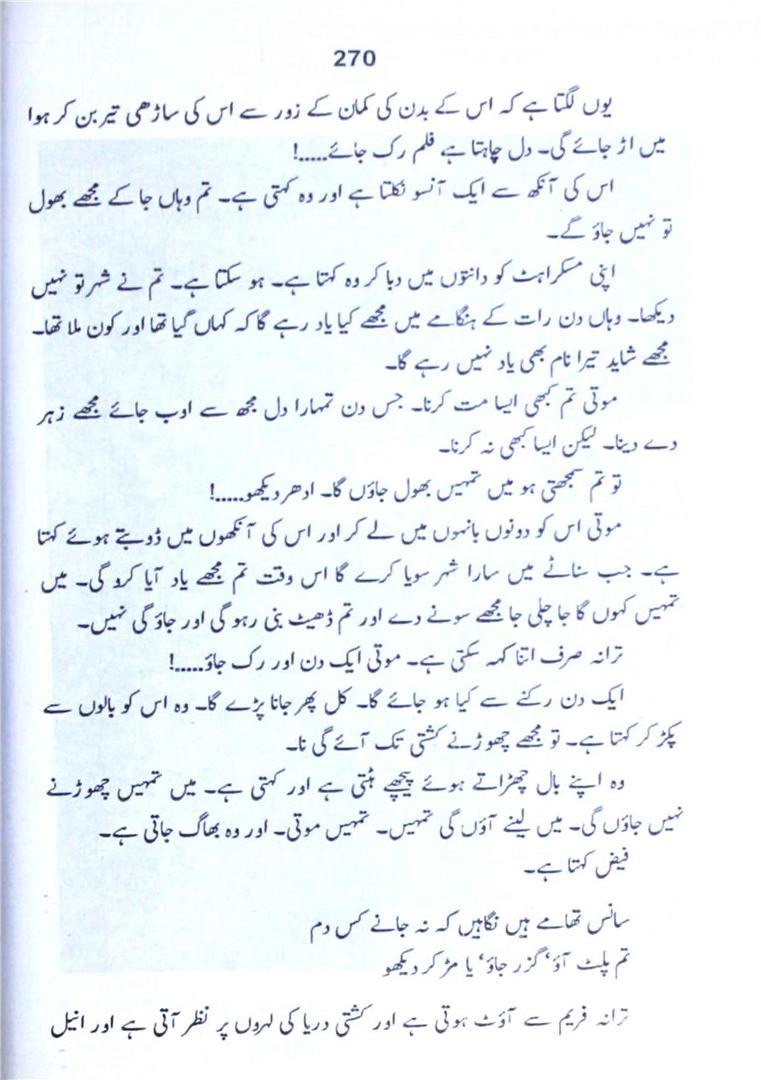 270
یوں لگتا ہے کہ اس کے بدن کی کمان کے زور سے اس کی ساڑھی تیر بن کر ہوا
میں اڑ جائے گی۔ دل چاہتا ہے فلم رک جائے.....!
اس کی آنکھ سے ایک آنسو نکلتا ہے اور وہ کہتی ہے۔ تم وہاں جا کے مجھے بھول
تو نہیں جاؤ گے۔
اپنی مسکراہٹ کو دانتوں میں دبا کر وہ کہتا ہے۔ ہو سکتا ہے۔ تم نے شہر تو نہیں
دیکھا۔ وہاں دن رات کے ہنگامے میں مجھے کیا یاد رہے گا کہ کہاں گیا تھا اور کون ملا تھا۔
مجھے شاید تیرا نام بھی یاد نہیں رہے گا۔
موتی تم کبھی ایسا مت کرنا۔ جس دن تمہارا دل مجھ سے اوب جائے مجھے زہر
دے دینا۔ لیکن ایسا کبھی نہ کرنا۔
تو تم سمجھتی ہو میں تمہیں بھول جاؤں گا۔ ادھر دیکھو.....!
موتی اس کو دونوں بانہوں میں لے کر اور اس کی آنکھوں میں ڈوبتے ہوئے کہتا
ہے۔ جب سناٹے میں سارا شہر سویا کرے گا اس وقت تم مجھے یاد آیا کرو گی۔ میں
تمہیں کہوں گا جا چلی جا مجھے سونے دے اور تم ڈھیٹ بنی رہو گی اور جاؤ گی نہیں۔
ترانہ صرف اتنا کہہ سکتی ہے۔ موتی ایک دن اور رک جاؤ.....!
ایک دن رکنے سے کیا ہو جائے گا۔ کل پھر جانا پڑے گا۔ وہ اس کو بالوں سے
پکڑ کر کہتا ہے۔ تو مجھے چھوڑنے کشتی تک آئے گی نا۔
وہ اپنے بال چھڑاتے ہوئے پیچھے ہٹتی ہے اور کہتی ہے۔ میں تمہیں چھوڑنے
نہیں جاؤں گی۔ میں لینے آؤں گی تمہیں۔ تمہیں موتی۔ اور وہ بھاگ جاتی ہے۔
فیض کہتا ہے۔
سانس تھامے ہیں نگاہیں کہ نہ جانے کس دم
تم پلٹ آؤ، گزر جاؤ، یا مڑ کر دیکھو
ترانہ فریم سے آؤٹ ہوتی ہے اور کشتی دریا کی لہروں پر نظر آتی ہے اور انیل